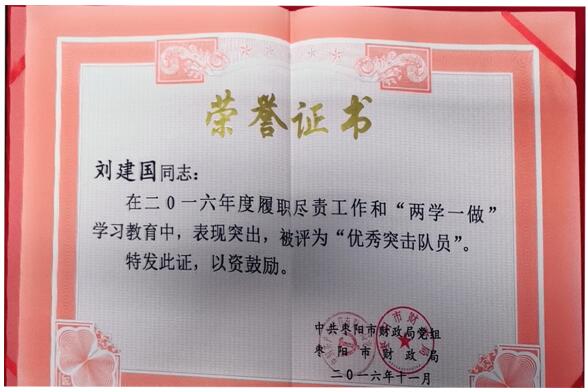 荣誉证书
刘建国同志：
在二0一六年度履职尽责工作和“两学一做”
学习教育中，表现突出，被评为“优秀突击队员”。
特发此证，以资鼓励。
中共枣阳市财政局党组
枣阳市财政局
二0一六年十一月